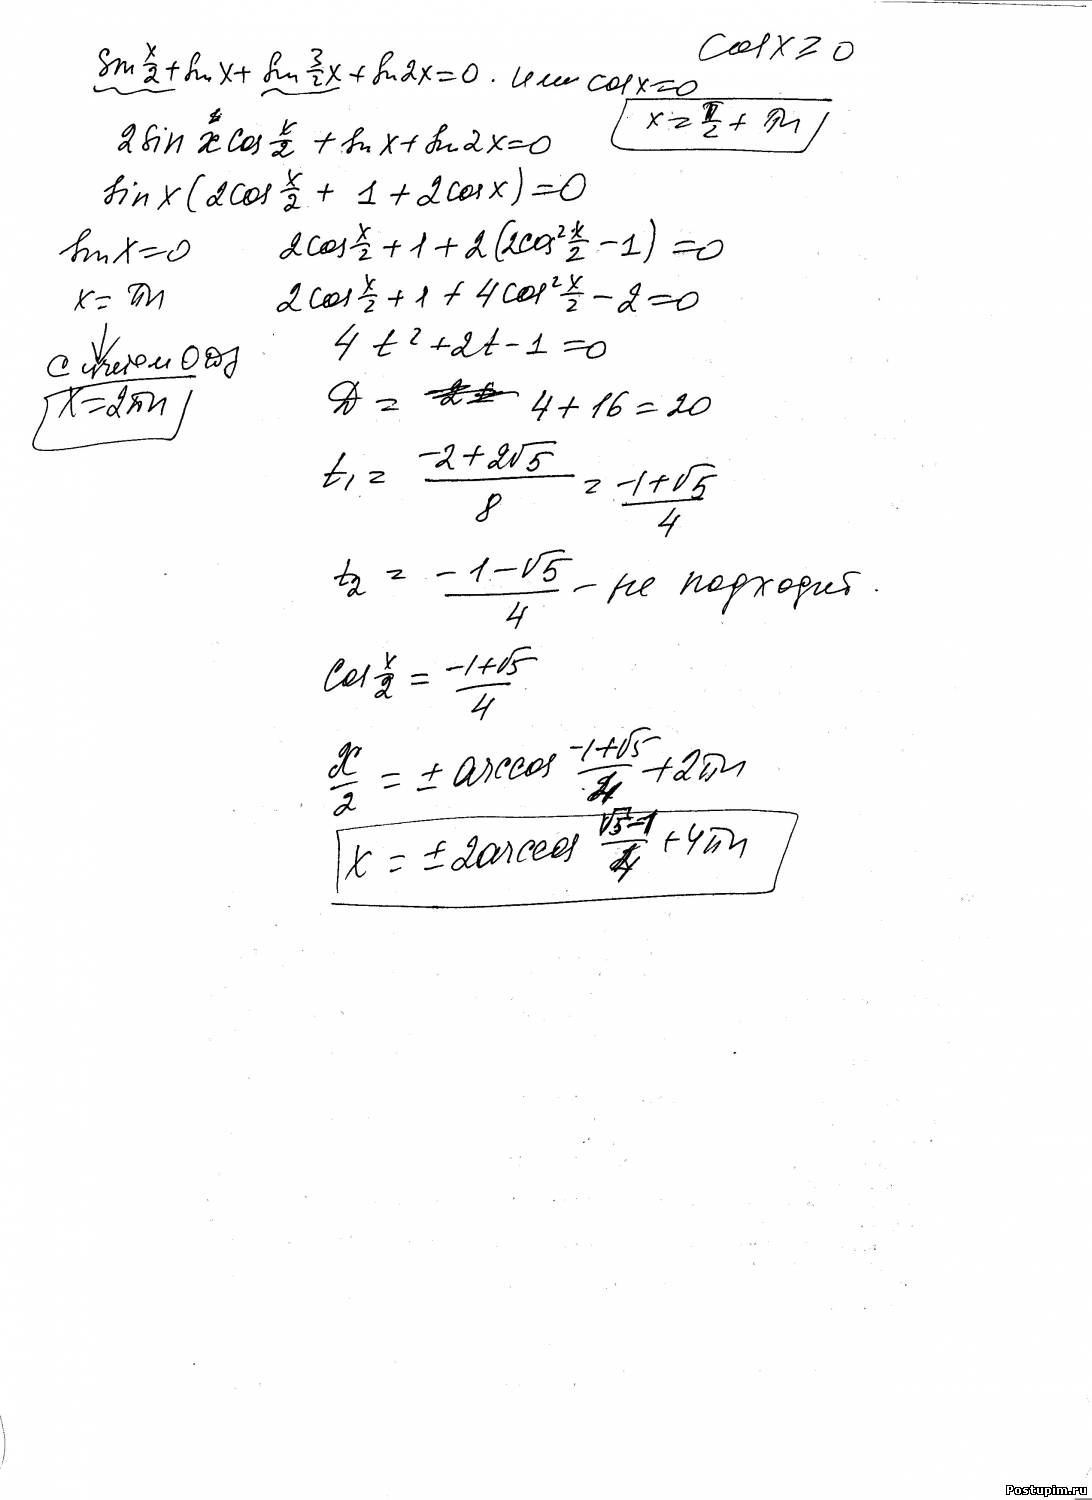 cos x ≥ 0
sin x/2 + sin x + sin 3/2 x + sin 2x = 0. или cos x = 0
x = π/2 + πn
2 sin x cos x/2 + sin x + sin 2x = 0
sin x (2cos x/2 + 1 + 2cos x) = 0
sin x = 0
2cos x/2 + 1 + 2(2cos² x/2 − 1) = 0
x = πn
2cos x/2 + 1 + 4cos² x/2 − 2 = 0
с учетом ОДЗ
4t² + 2t − 1 = 0
x = 2πn
D = 4 + 16 = 20
t₁ = (−2 + 2√5)/8 = (−1 + √5)/4
t₂ = (−1 − √5)/4 – не подходит.
cos x/2 = (−1 + √5)/4
x/2 = ± arccos (−1 + √5)/4 + 2πn
x = ± 2arccos (√5 − 1)/4 + 4πn
Postupim.ru